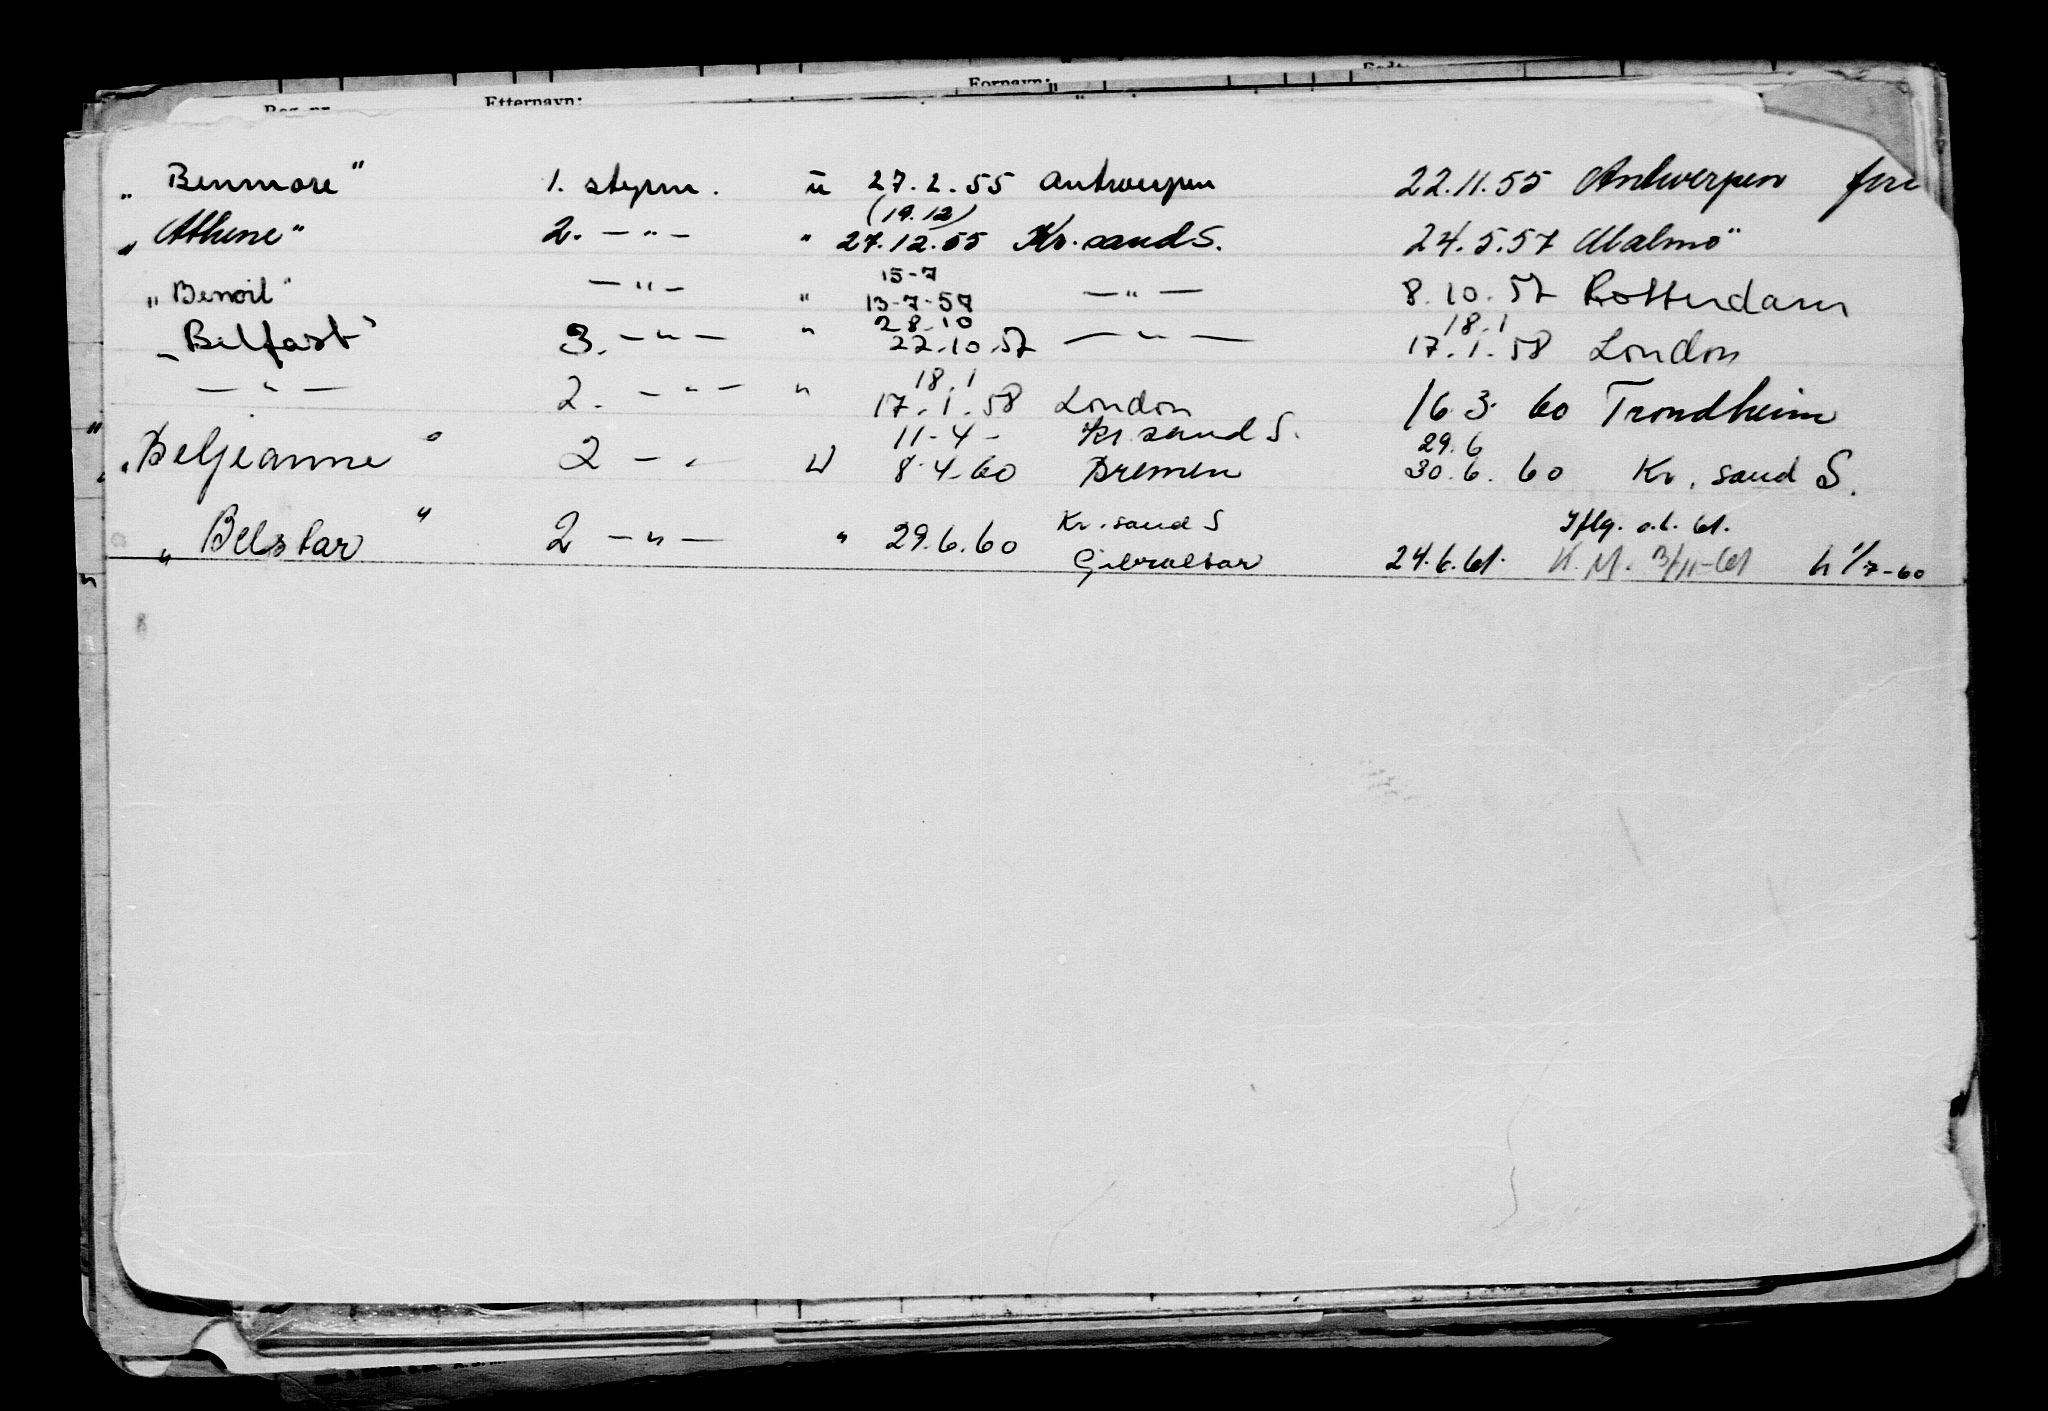 Etternavn: Fornavn:
„ Benmore " 1. styrm. u 27.2.55 Antwerpen 22.11.55 Antwerpen
(19.12)
„ Athene " 2. — " — " 27.12.55 Kr. sand S. 24.5.57 Malmö
15-7
„ Benoil " — " — " 13-7-57 — " — 8.10.57 Rotterdam
28.10 18.1
„ Belfast " 3. — " — " 22.10.57 — " — 17.1.58 London
18.1
— " — 2. — " — " 17.1.58 London 16.3.60 Trondheim
11-4- Kr. sand S. 29.6
„ Beljeanne " 2 — " 8.4.60 Bremen 30.6.60 Kr. sand S.
Kr. sand S Iflg. o.l. 61.
„ Belstar " 2 — " — " 29.6.60 Gibraltar 24.6.61. K.M. 3/11-61 h 1/7-60